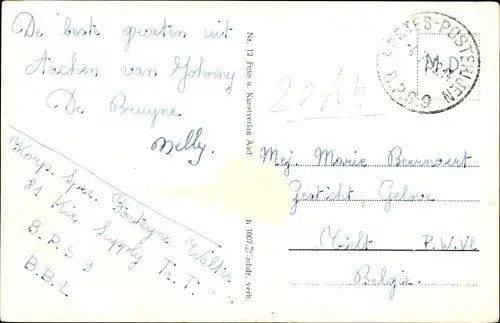 De beste groeten uit
Aachen van Johnny
De Bruyne
Nelly.
Korp. Spec. Fonteyne Walter
81 Kie Supply Tr. T.
B.P.S 9
B.B.L
Nr. 12 Foto u. Kunstverlag
h 1007 verb.
POSTES-POSTERIJEN
B.P.S.9
M.D.
Mej. Marie Beernaert
Gesticht
Tielt P.W.Vl
Belgie.